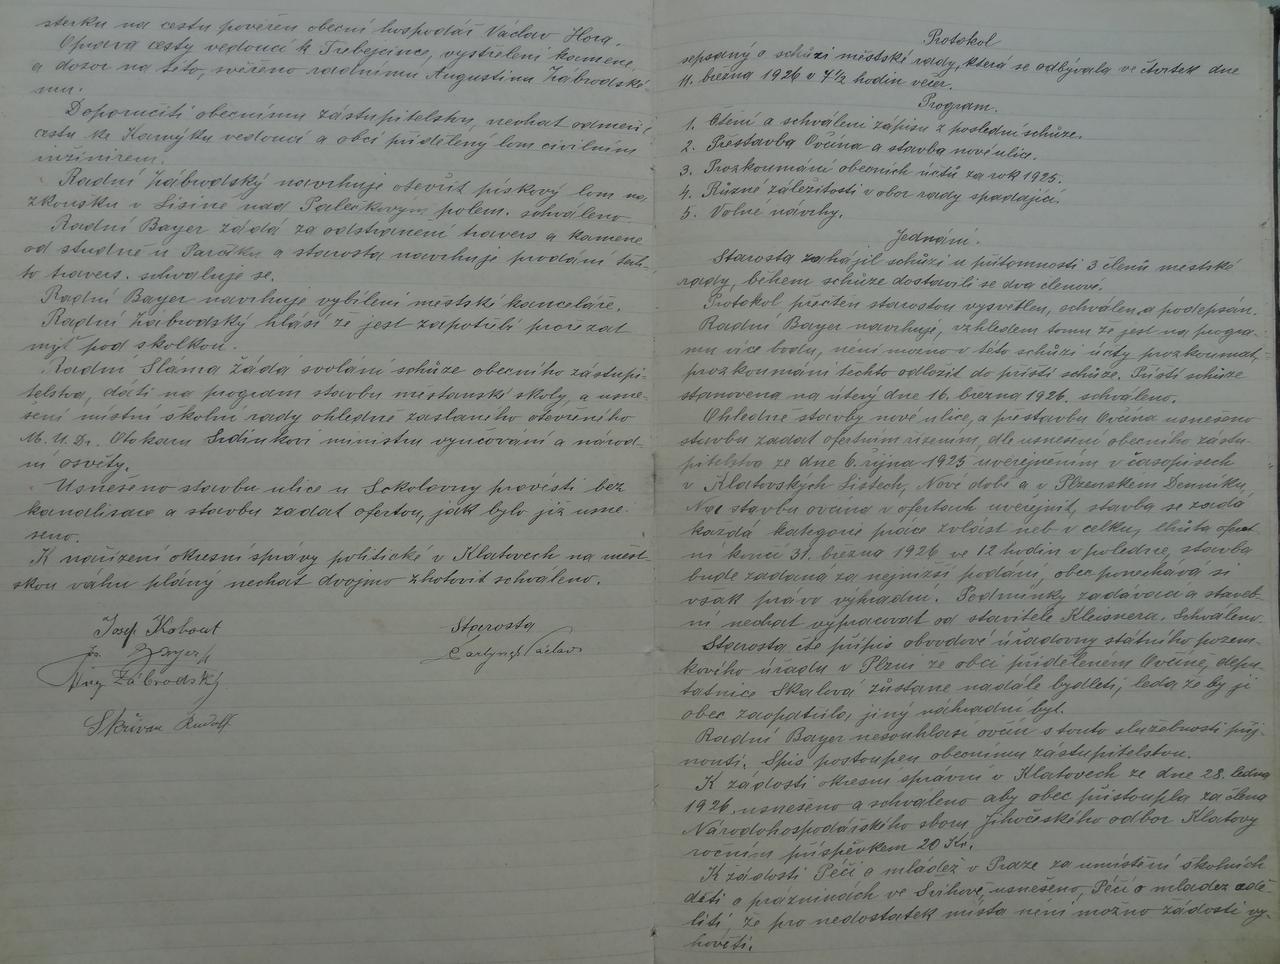 sterku na cestu pověřen obecní hospodář Václav Hora.
Oprava cesty vedoucí k Třebejčince, vystřelení kamene,
a dozor na této, svěřeno radnímu Augustinu Žabrodské-
mu.
Doporučiti obecnímu zástupitelstvu, nechat odměřit
cestu ke Kamýku vedoucí a obcí přidělený lom civilním
inžinírem.
Radní Žábrodský navrhuje otevřít pískový lom na
zkoušku v Lísině nad Palečkovým polem. schváleno
Radní Bayer žádá za odstranění travers a kamene
od studně u Parážku a starosta navrhuje prodání těch-
to travers. schvaluje se.
Radní Bayer navrhuje vybílení městské kanceláře.
Radní Žábrodský hlásí že jest zapotřebí prořezat
mýť pod školkou.
Radní Sláma žádá svolání schůze obecního zástupi-
telstva, dáti na program stavbu měšťanské školy, a usne-
sení místní školní rady ohledně zaslaného otevřeného
M. U. Dr. Otokaru Srdínkovi ministru vyučování a národ-
ní osvěty.
Usnešeno stavbu ulice u Sokolovny provésti bez
kanalisace a stavbu zadat ofertou, jak bylo již usne-
šeno.
K nařízení okresní správy politické v Klatovech na měst-
skou váhu plány nechat dvojmo zhotovit schváleno.
Josef Kohout
Starosta
Fr. Bayer
Václav
Aug Žábrodský
Skřivan Rudolf
Protokol
sepsaný o schůzi městské rady, která se odbývala ve čtvrtek dne
11. března 1926 v 7½ hodin večer.
Program.
1. Čtení a schválení zápisu z poslední schůze.
2. Přestavba Ovčína a stavba nové ulice.
3. Prozkoumání obecních účtů za rok 1925.
4. Různé záležitosti v obor rady spadající.
5. Volné návrhy.
Jednání.
Starosta zahájil schůzi u přítomnosti 3 členů městské
rady, během schůze dostavili se dva členové.
Protokol přečten starostou vysvětlen, schválen a podepsán.
Radní Bayer navrhuje, vzhledem tomu že jest na progra-
mu více bodů, není možno v této schůzi účty prozkoumat,
prozkoumání těchto odložit do příští schůze. Příští schůze
stanovena na úterý dne 16. března 1926. schváleno.
Ohledně stavby nové ulice, a přestavbu Ovčína usnešeno
stavbu zadat ofertním řízením, dle usnesení obecního zástu-
pitelstva ze dne 6. října 1925 uveřejněním v časopisech
v Klatovských Listech, Nové době a v Plzenskem Denníku,
Na stavbu ovčína v ofertách uveřejnit, stavba se zadá
každá kategorie práce zvlášť neb v celku, lhůta ofert-
ní končí 31. března 1926 ve 12 hodin v poledne, stavba
bude zadaná za nejnižší podání, obec ponechává si
však právo výhradní. Podmínky zadávací a staveb-
ní nechat vypracovat od stavitele Kleisnera. Schváleno.
Starosta čte přípis obvodové úřadovny státního pozem-
kového úřadu v Plzni ze obci přiděleném Ovčíně, depu-
tatnice Skalová zůstane nadále bydleti, leda že by jí
obec zaopatřila, jiný náhradní byt.
Radní Bayer nesouhlasí ovčín s touto služebností přij-
mouti. Spis postoupen obecnímu zástupitelstvu.
K žádosti okresní správní v Klatovech ze dne 28. ledna
1926 usneseno a schváleno aby obec přistoupla za člena
Národohospodářského sboru Jihočeského odbor Klatovy
ročním příspěvkem 20 Kč.
K žádosti Péčí o mládež v Praze za umístění školních
dětí o prázninách ve Švihově, usnešeno, Péčí o mládež sdě-
liti, že pro nedostatek místa není možno žádosti vy-
hověti.